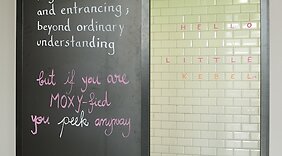 and entrancing;
beyond ordinary
understanding
but if you are
MOXY-fied
you peek anyway
HELLO
LITTLE